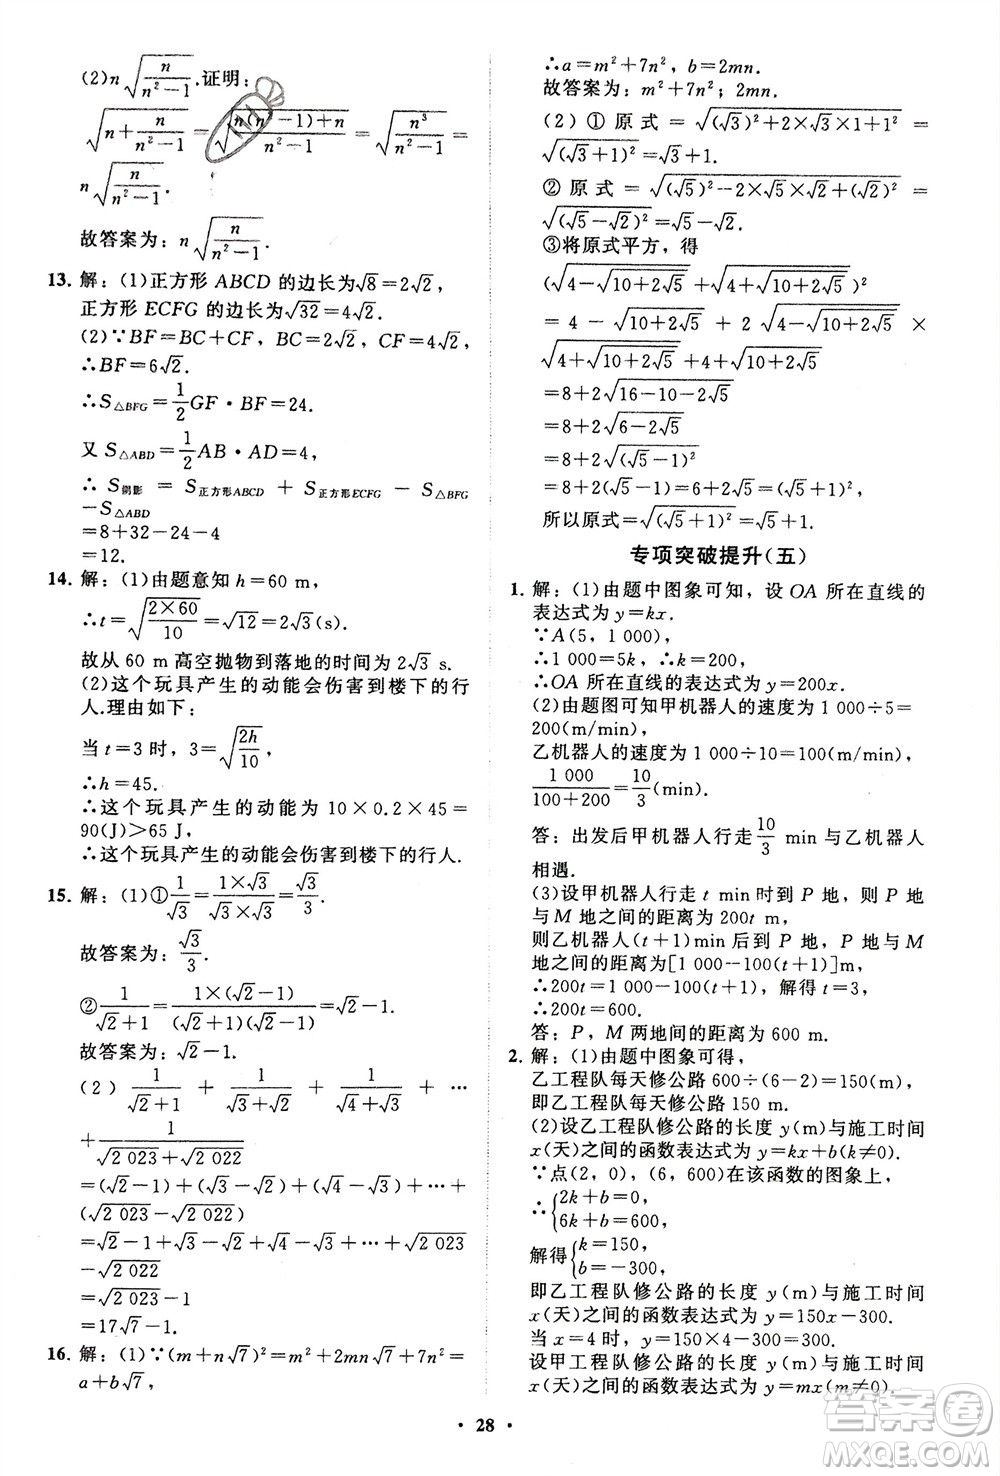 (2)n√(n/(n²-1)).证明:
√(n+n/(n²-1))=√((n(n²-1)+n)/(n²-1))=√(n³/(n²-1))=
n√(n/(n²-1)).
故答案为:n√(n/(n²-1)).
13. 解:(1)正方形 ABCD 的边长为√8=2√2,
正方形 ECFG 的边长为√32=4√2.
(2)∵BF=BC+CF,BC=2√2,CF=4√2,
∴BF=6√2.
∴S△BFG=1/2 GF·BF=24.
又 S△ABD=1/2 AB·AD=4,
∴ S阴影 = S正方形ABCD + S正方形ECFG - S△BFG
-S△ABD
=8+32-24-4
=12.
14. 解:(1)由题意知 h=60 m,
∴t=√((2×60)/10)=√12=2√3(s).
故从 60 m 高空抛物到落地的时间为 2√3 s.
(2)这个玩具产生的动能会伤害到楼下的行
人.理由如下:
当 t=3 时,3=√(2h/10),
∴h=45.
∴这个玩具产生的动能为 10×0.2×45=
90(J)>65 J.
∴这个玩具产生的动能会伤害到楼下的行人.
15. 解:(1)①1/√3=(1×√3)/(√3×√3)=√3/3.
故答案为:√3/3.
②1/(√2+1)=(1×(√2-1))/((√2+1)(√2-1))=√2-1.
故答案为:√2-1.
(2) 1/(√2+1) + 1/(√3+√2) + 1/(√4+√3) + ⋯
+1/(√2 023+√2 022)
=(√2-1)+(√3-√2)+(√4-√3)+⋯+
(√2 023-√2 022)
=√2-1+√3-√2+√4-√3+⋯+√2 023
-√2 022
=√2 023-1
=17√7-1.
16. 解:(1)∵(m+n√7)²=m²+2mn√7+7n²=
a+b√7,
∴a=m²+7n²,b=2mn.
故答案为:m²+7n²;2mn.
(2) ① 原式 =√((√3)²+2×√3×1+1²)=
√((√3+1)²)=√3+1.
② 原式 =√((√5)²-2×√5×√2+(√2)²)=
√((√5-√2)²)=√5-√2.
③将原式平方,得
(√(4-√(10+2√5))+√(4+√(10+2√5)))²
= 4 - √(10+2√5) + 2 √(4-√(10+2√5)) ×
√(4+√(10+2√5))+4+√(10+2√5)
=8+2√(16-10-2√5)
=8+2√(6-2√5)
=8+2√((√5-1)²)
=8+2(√5-1)=6+2√5=(√5+1)².
所以原式=√((√5+1)²)=√5+1.
专项突破提升(五)
1. 解:(1)由题中图象可知,设 OA 所在直线的
表达式为 y=kx.
∵A(5,1 000),
∴1 000=5k,∴k=200.
∴OA 所在直线的表达式为 y=200x.
(2)由题图可知甲机器人的速度为 1 000÷5=
200(m/min),
乙机器人的速度为 1 000÷10=100(m/min),
1 000/(100+200)=10/3(min).
答:出发后甲机器人行走10/3 min与乙机器人
相遇.
(3)设甲机器人行走 t min时到 P 地,则 P 地
与 M 地之间的距离为200t m,
则乙机器人(t+1)min后到 P 地,P 地与 M
地之间的距离为[1 000-100(t+1)]m,
∴200t=1 000-100(t+1),解得 t=3,
∴200t=600.
答:P,M 两地间的距离为 600 m.
2. 解:(1)由题中图象可得,
乙工程队每天修公路 600÷(6-2)=150(m),
即乙工程队每天修公路 150 m.
(2)设乙工程队修公路的长度 y(m)与施工时间
x(天)之间的函数表达式为 y=kx+b(k≠0).
∵点(2,0),(6,600)在该函数的图象上,
∴{2k+b=0,
6k+b=600,
解得{k=150,
b=-300,
即乙工程队修公路的长度 y(m)与施工时间
x(天)之间的函数表达式为 y=150x-300.
当 x=4 时,y=150×4-300=300.
设甲工程队修公路的长度 y(m)与施工时间
x(天)之间的函数表达式为 y=mx(m≠0).
• 28 •
答案圈
MXQE.COM